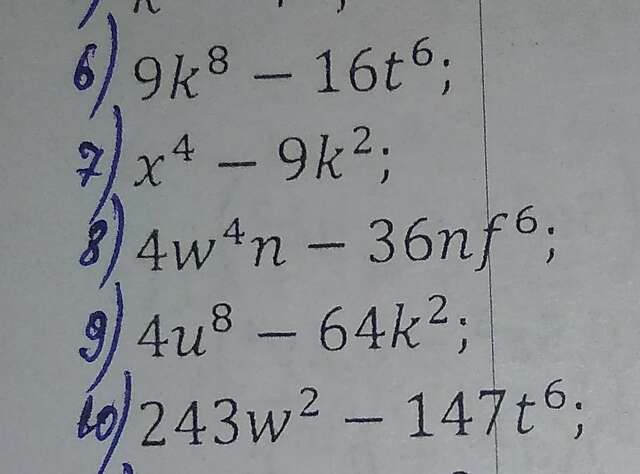 6) 9k⁸ − 16t⁶;
7) x⁴ − 9k²;
8) 4w⁴n − 36nf⁶;
9) 4u⁸ − 64k²;
10) 243w² − 147t⁶;